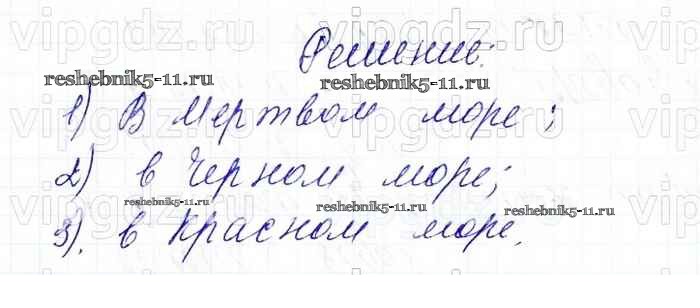 Решение:
reshebnik5-11.ru reshebnik5-11.ru
1) В Мертвом море;
2) в Черном море;
reshebnik5-11.ru reshebnik5-11.ru reshebnik5-11.ru
3). в Красном море.